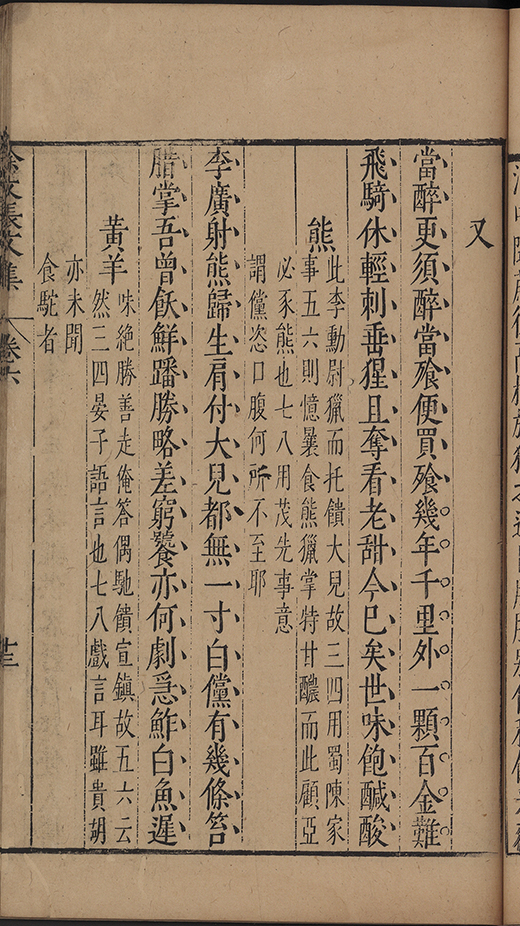 又
當醉更須醉當飱便買飱幾年千里外一顆百金難
飛騎休輕刺垂猩且奪看老甜今已矣世味飽醎酸
熊
此李勳尉獵而托饋大兒故三四用蜀陳家
事五六則憶曩食熊獵掌特甘醲而此顧亞
必豕熊也七八用茂先事意
謂儻恣口腹何所不至耶
李廣射熊歸生肩付大兒都無一寸白儻有幾條笞
腊掌吾曾飫鮮蹯勝略差窮饕亦何劇爲鮓白魚遲
黃羊
味絶勝善走俺答偶馳饋宣鎮故五六云
然三四晏子語言也七八戲言耳雖貴胡
亦未聞
食駝者
徐文長文集
卷六